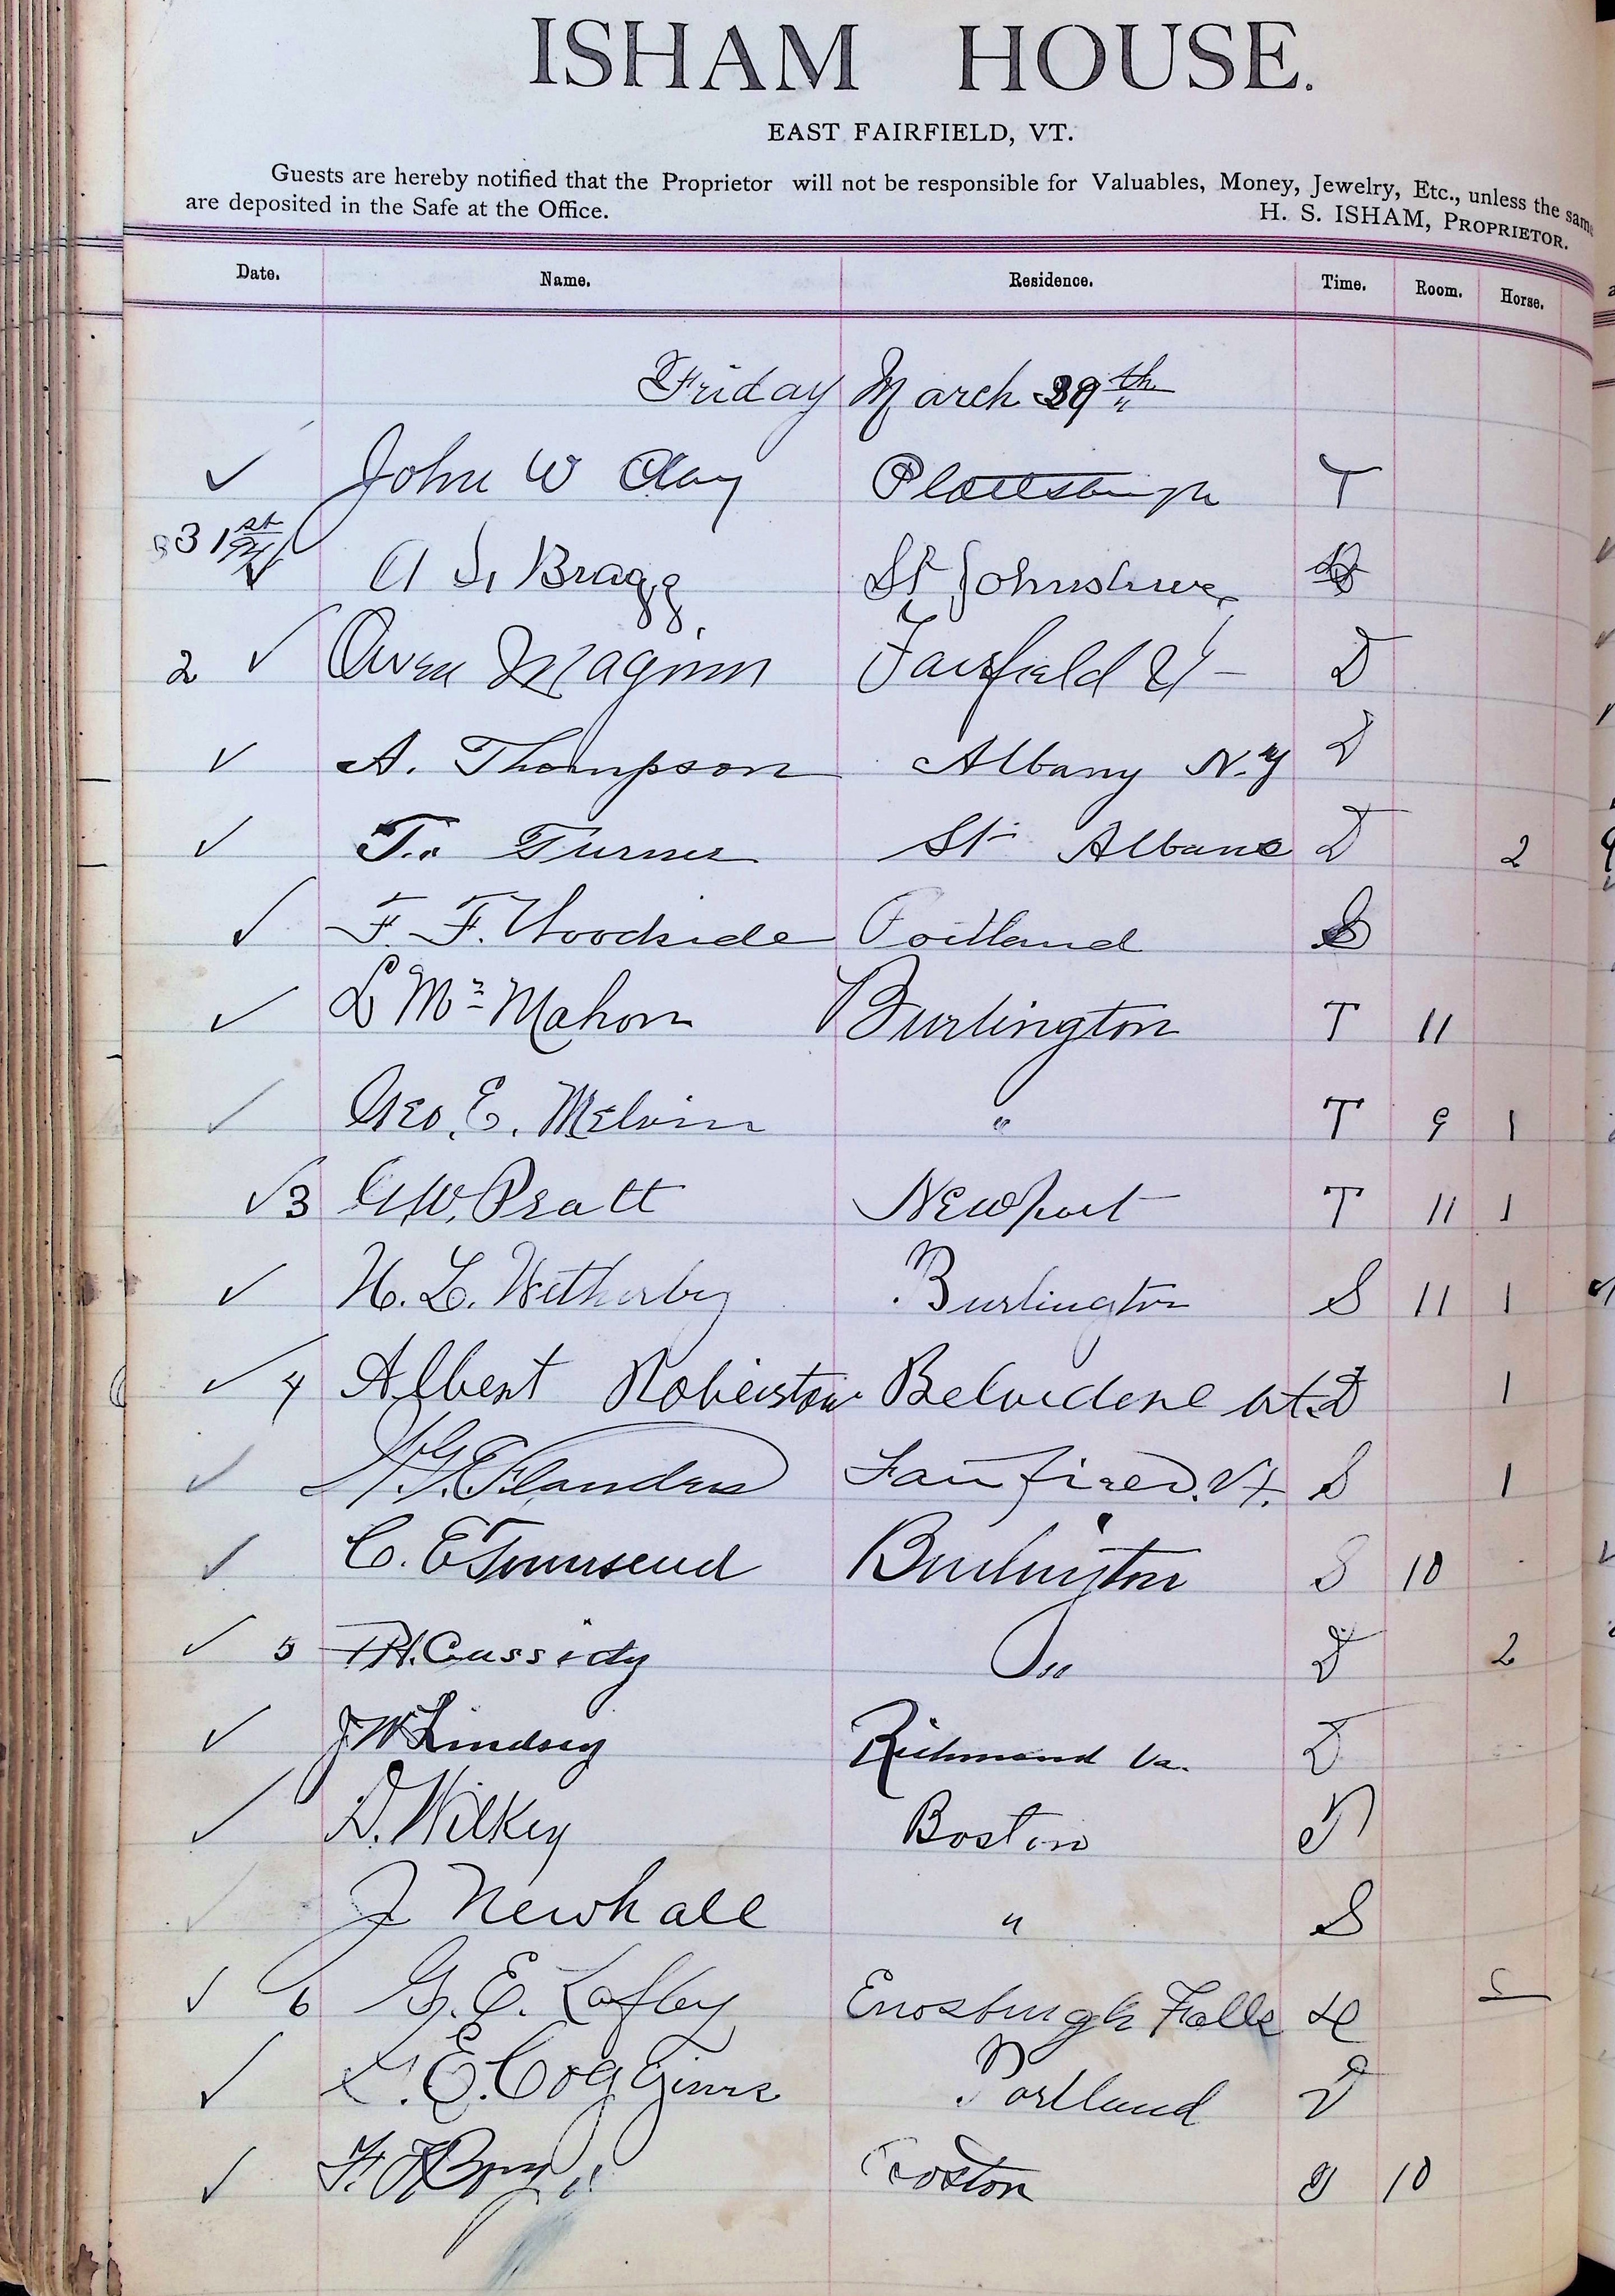 ISHAM HOUSE.
EAST FAIRFIELD, VT.
Guests are hereby notified that the Proprietor will not be responsible for Valuables, Money, Jewelry, Etc., unless the same
are deposited in the Safe at the Office. H. S. ISHAM, PROPRIETOR.
Date. Name. Residence. Time. Room. Horse.
Friday March 29th
✓ John W Clay Plattsburgh T
31st ✓ A S. Bragg St Johnsbury
2 ✓ Owen Maginn Fairfield Vt D
✓ A. Thompson Albany N.Y D
✓ T. Turner St Albans D 2
✓ F. F. Woodside Portland S
✓ L Mc Mahon Burlington T 11
✓ Geo. E. Melvin " T 9 1
✓ 3 G.W. Pratt Newport T 11 1
✓ H. L. Witherby Burlington S 11 1
✓ 4 Albert Roberston Belvidere Vt. D 1
✓ Flanders Fairfield. Vt. S 1
✓ C. E Townsend Burlington S 10
✓ 5 Cassidy " D 2
✓ J W Lindsey Richmond Va. D
✓ D. Wilkey Boston
✓ J Newhall " S
✓ 6 G. E. Lafley Enosburgh Falls
✓ E. Coggins Portland D
✓ Boston 10